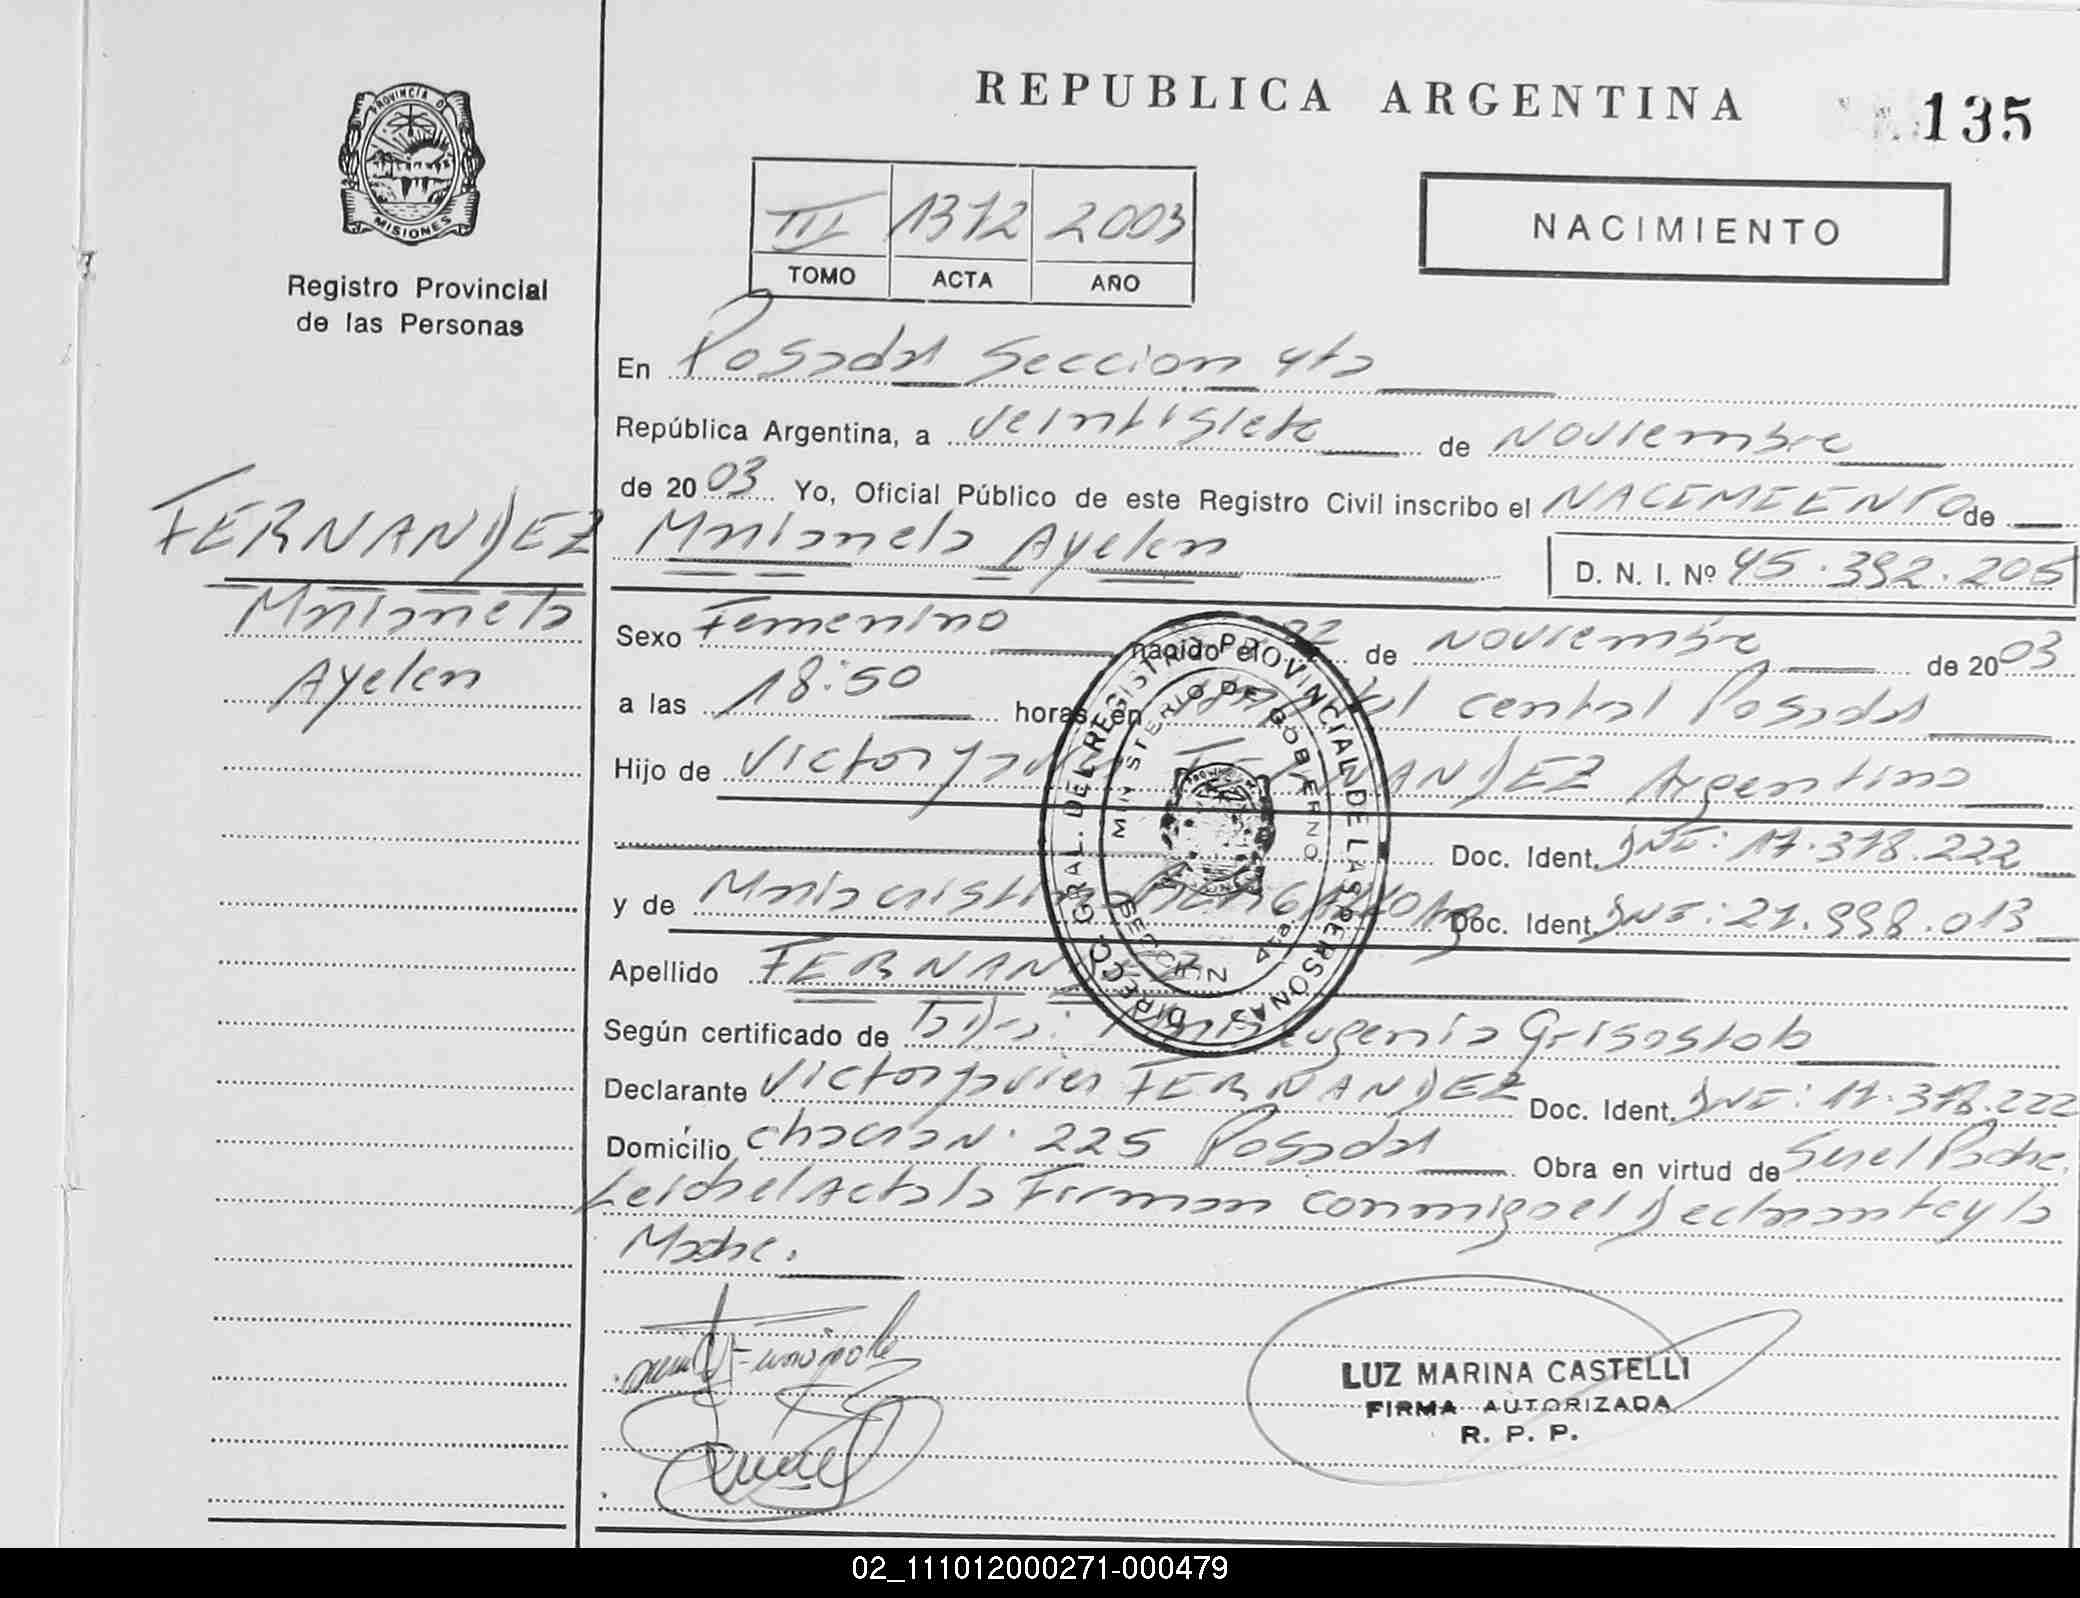 REPUBLICA ARGENTINA
135
PROVINCIA D
MISIONES
Registro Provincial
de las Personas
III 1372 2003
TOMO ACTA AÑO
NACIMIENTO
En Posadas Seccion 4ta
República Argentina, a veintisiete de noviembre
de 2003 Yo, Oficial Público de este Registro Civil inscribo el NACIMIENTO de
FERNANDEZ
Marianela Ayelen D. N. I. Nº 45.392.205
Marianela
Ayelen
Sexo Femenino nacido el 22 de noviembre de 2003
a las 18:50 horas, en central Posadas
Hijo de Victor Javier FERNANDEZ Argentino
Doc. Ident. DNI: 17.378.222
y de Maria cristina Doc. Ident. DNI: 27.998.013
Apellido FERNANDEZ
Según certificado de Eugenia Grisostolo
Declarante Victor Javier FERNANDEZ Doc. Ident. DNI: 17.378.222
Domicilio chacra N. 225 Posadas Obra en virtud de Ser el Padre.
Leida el Acta la Firman conmigo el Declarante y la
Madre.
DIRECC. GRAL. DEL REGISTRO PROVINCIAL DE LAS PERSONAS
MINISTERIO DE GOBIERNO
SECCION 4ta
LUZ MARINA CASTELLI
FIRMA AUTORIZADA
R. P. P.
02_111012000271-000479